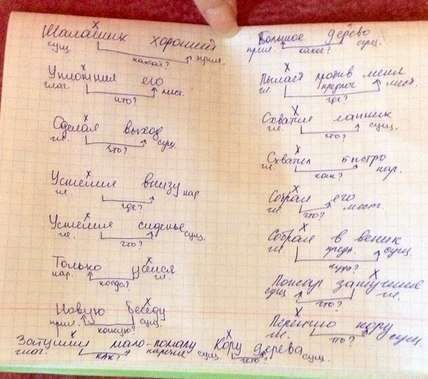 Шалашик хороший
сущ. какой? прил.
его
глаг. что? мест.
Сделал выход
гл. что? сущ.
Устелил внизу
гл. где? нар.
Устелил сиденье
гл. что? сущ.
Только
нар. когда? гл.
Новую беседу
прил. какую? сущ.
мало-помалу
глаг. как? наречие
Кору дерева
сущ. чего? сущ.
Большое дерево
прил. какое? сущ.
против меня
гл. предлог мест.
где?
Схватил
гл. что? сущ.
Схватил быстро
гл. как? нар.
Собрал его
гл. что? мест.
Собрал в веник
гл. предл. сущ.
Пожар
сущ. что? гл.
кору
гл. что? сущ.